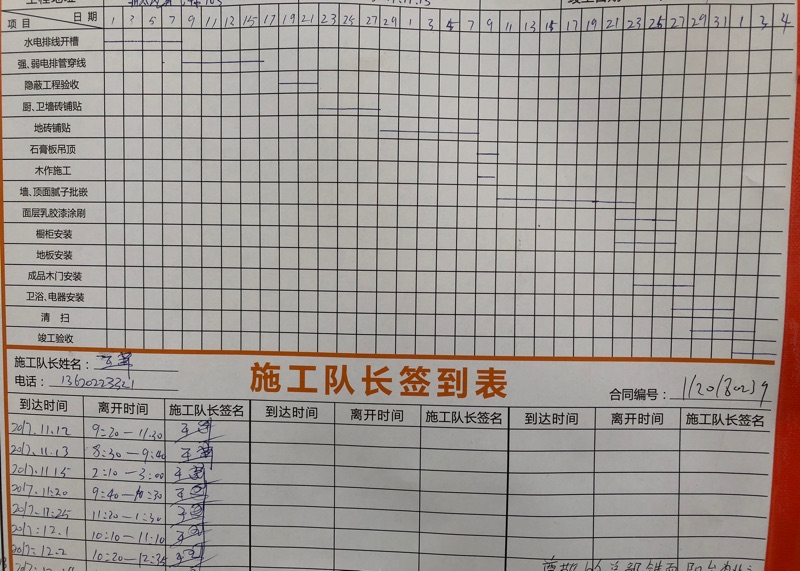 日 期
项 目
1 3 5 7 9 11 13 15 17 19 21 23 25 27 29 1 3 5 7 9 11 13 15 17 19 21 23 25 27 29 31 1 3 4
水电排线开槽
强、弱电排管穿线
隐蔽工程验收
厨、卫墙砖铺贴
地砖铺贴
石膏板吊顶
木作施工
墙、顶面腻子批嵌
面层乳胶漆涂刷
橱柜安装
地板安装
成品木门安装
卫浴、电器安装
清 扫
竣工验收
施工队长姓名：
电话：13620223321
施工队长签到表
合同编号：
到达时间 离开时间 施工队长签名 到达时间 离开时间 施工队长签名 到达时间 离开时间 施工队长签名
2017.11.12 9:20—11.30
2017.11.13 8:30—9:40
2017.11.15 2:10—3:00
2017.11.20 9:40—10:30
2017.11.25 11:20—1:30
2017.12.1 10:10—11:10
2017.12.2